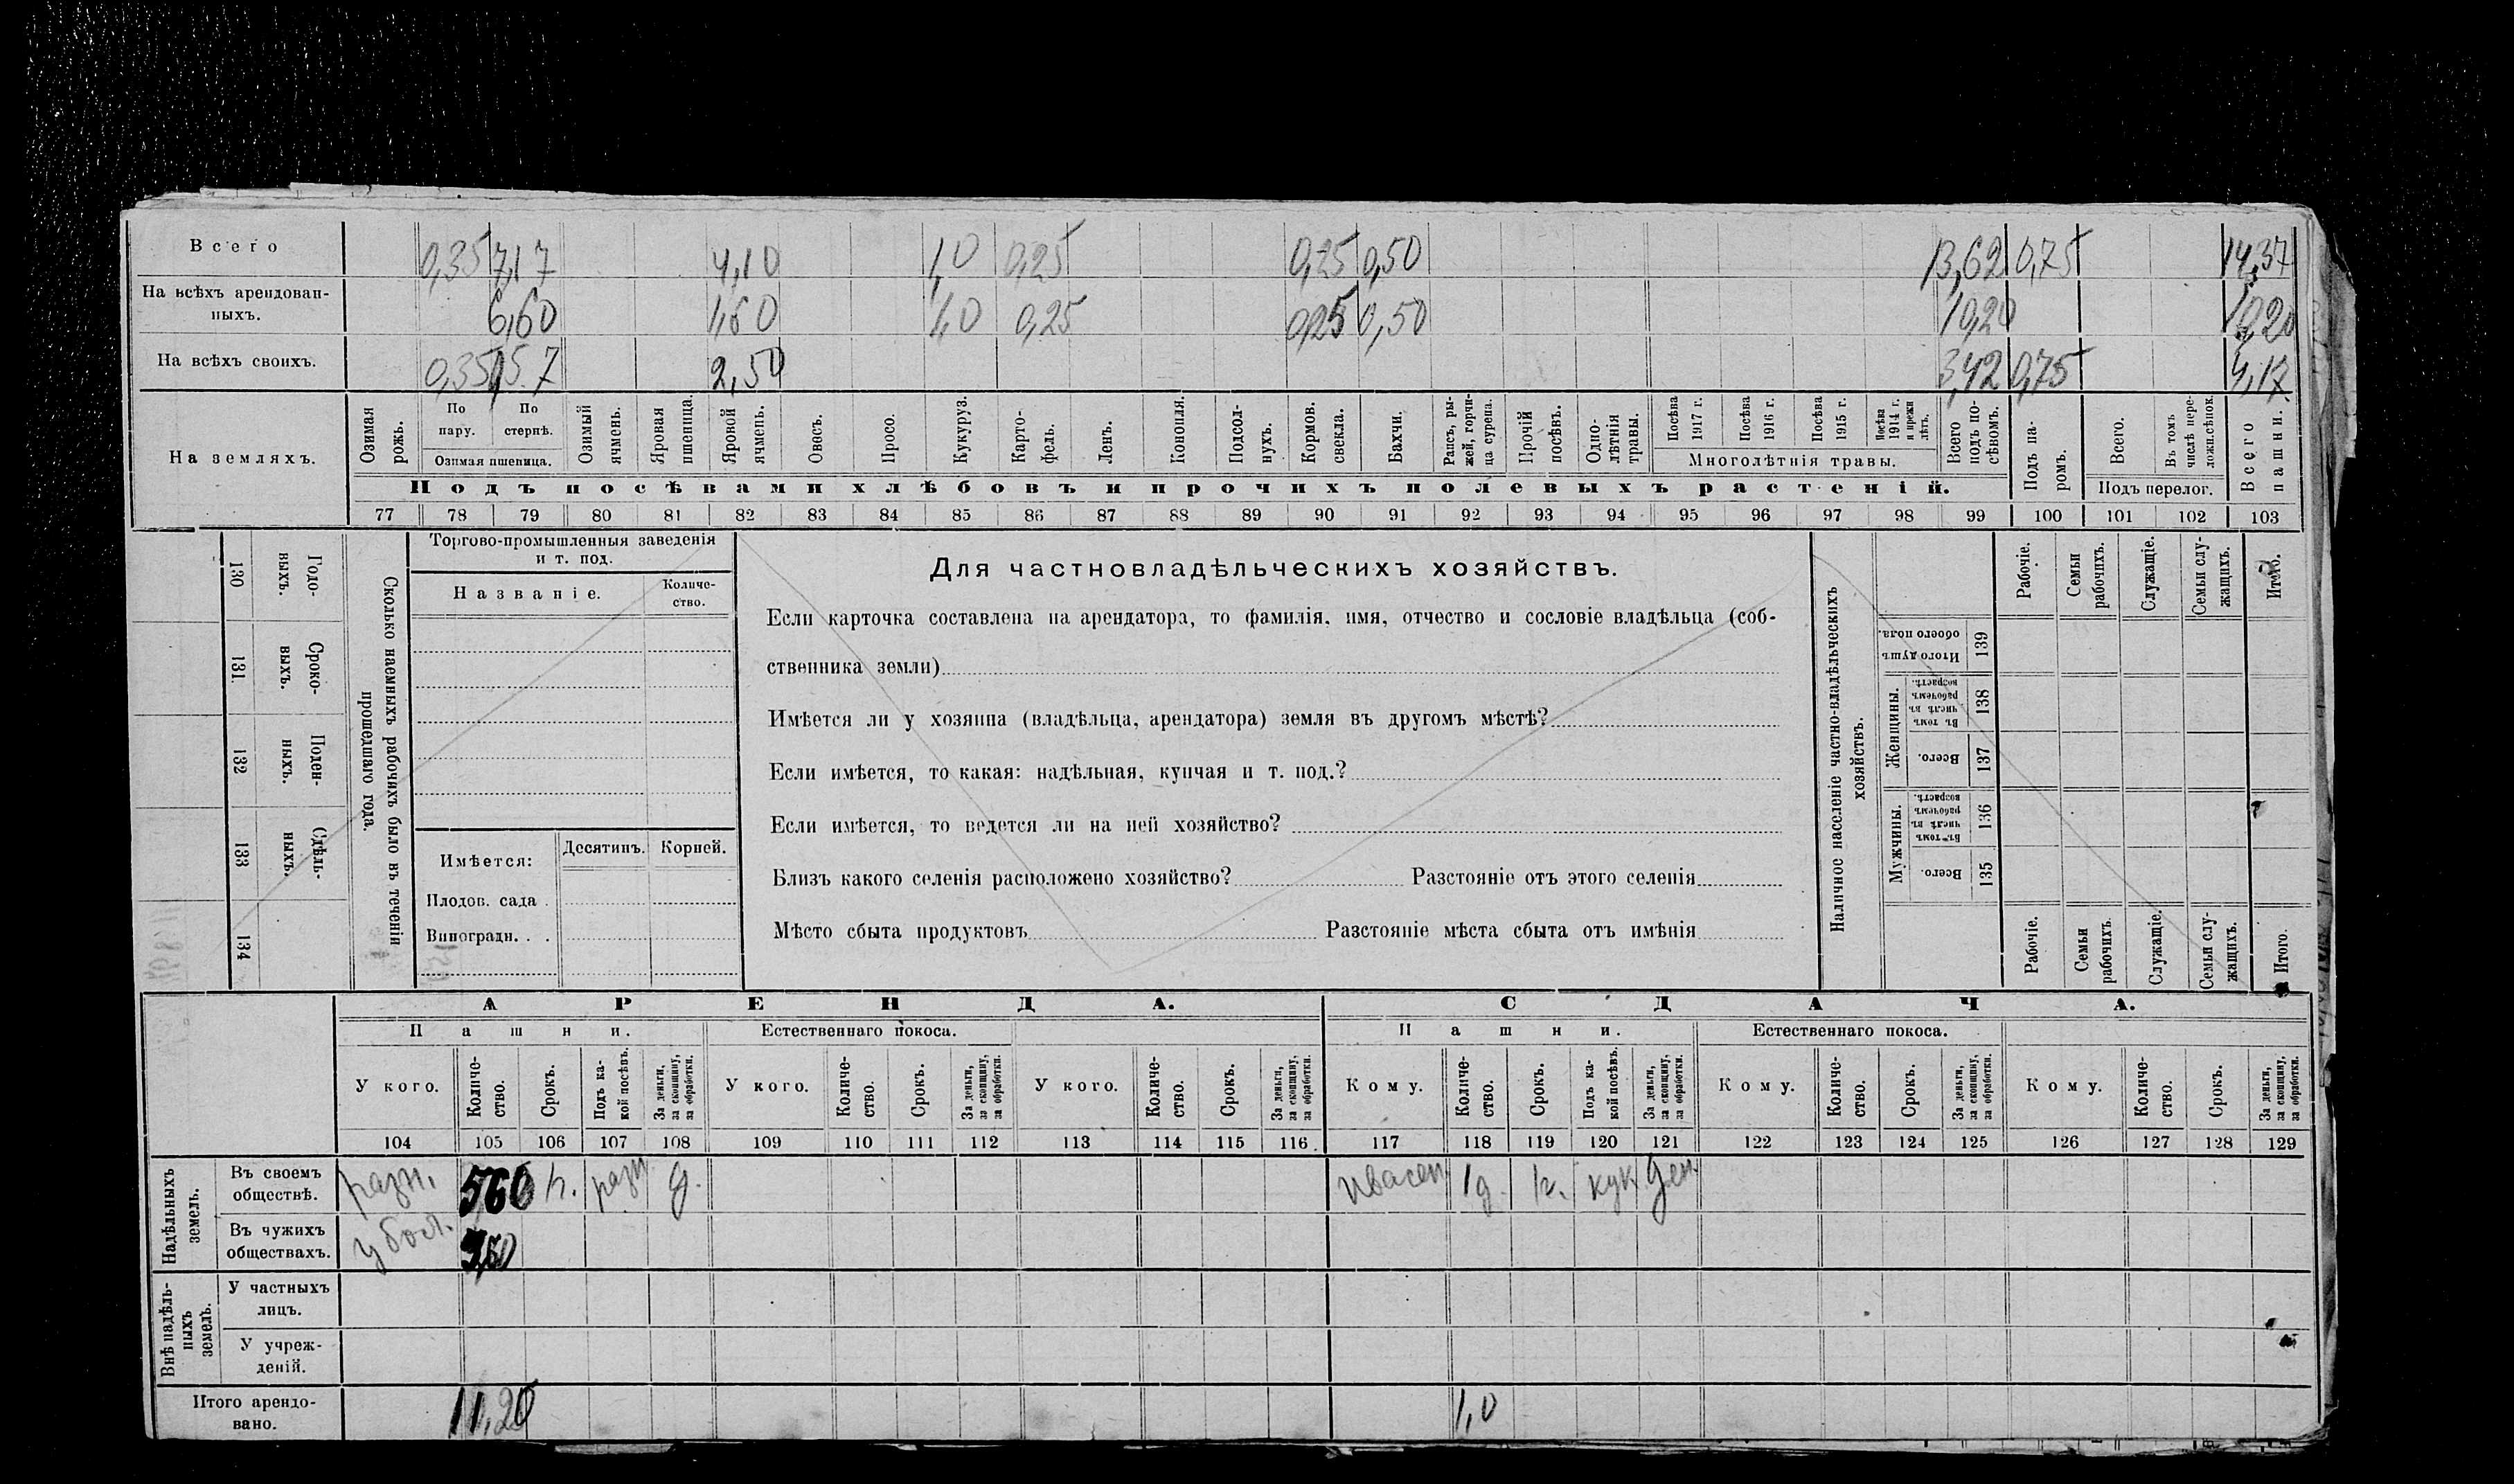 Всего 0,35 7,17 4,10 1,0 0,25 0,25 0,50 13,62 0,75 14,37
На всѣхъ арендован-
ныхъ. 6,60 1,60 1,0 0,25 0,25 0,50 10,20 10,20
На всѣхъ своихъ. 0,35 2,50 3,42 0,75 4,17
На земляхъ.
Озимая рожь.
По пару.
По стернѣ.
Озимая пшеница.
Озимый ячмень.
Яровая пшеница.
Яровой ячмень.
Овесъ.
Просо.
Кукуруз.
Карто-
фель.
Ленъ.
Конопля.
Подсол-
нухъ.
Кормов.
свекла.
Бахчи.
Рапсъ, ры-
жей, горчи-
ца сурепа.
Прочій
посѣвъ.
Одно-
лѣтнія
травы.
Посѣва
1917 г.
Посѣва
1916 г.
Посѣва
1915 г.
Посѣва
1914 г.
и прежн
лѣтъ.
Многолѣтнія травы.
Всего
подъ по-
сѣвомъ.
Подъ па-
ромъ.
Всего.
Въ томъ
числѣ пере-
ложн.сѣнок.
Подъ перелог.
Всего
пашни.
Подъ посѣвами хлѣбовъ и прочихъ полевыхъ растеній.
77 78 79 80 81 82 83 84 85 86 87 88 89 90 91 92 93 94 95 96 97 98 99 100 101 102 103
130 Годо-
выхъ.
131. Сроко-
выхъ.
132 Поден-
ныхъ.
133 Сдѣль-
ныхъ.
134
Сколько наемныхъ рабочихъ было въ теченіи
прошедшаго года.
Торгово-промышленныя заведенія
и т. под.
Названіе.
Количе-
ство.
Имѣется:
Десятинъ.
Корней.
Плодов. сада .
Виноградн. . .
Для частновладѣльческихъ хозяйствъ.
Если карточка составлена на арендатора, то фамилія, имя, отчество и сословіе владѣльца (соб-
ственника земли)
Имѣется ли у хозяина (владѣльца, арендатора) земля въ другомъ мѣстѣ?
Если имѣется, то какая: надѣльная, купчая и т. под.?
Если имѣется, то ведется ли на ней хозяйство?
Близъ какого селенія расположено хозяйство? Разстояніе отъ этого селенія
Мѣсто сбыта продуктовъ Разстояніе мѣста сбыта отъ имѣнія
Наличное населеніе частно-владѣльческихъ
хозяйствъ.
Рабочіе.
Семьи
рабочихъ.
Служащіе.
Семьи слу-
жащихъ.
Итого.
Итого душъ
обоего пола.
139
Женщины.
Въ томъ
числѣ въ
рабочемъ
возрастѣ.
138
Всего.
137
Мужчины.
Въ томъ
числѣ въ
рабочемъ
возрастѣ.
136
Всего.
135
Рабочіе.
Семьи
рабочихъ.
Служащіе.
Семьи слу-
жащихъ.
Итого.
АРЕНДА. СДАЧА.
Пашни. Естественнаго покоса. Пашни. Естественнаго покоса.
У кого.
Количе-
ство.
Срокъ.
Подъ ка-
кой посѣвъ.
За деньги,
за скопщину,
за обработки.
У кого.
Количе-
ство.
Срокъ.
За деньги,
за скопщину,
за обработки.
У кого.
Количе-
ство.
Срокъ.
За деньги,
за скопщину,
за обработки.
Кому.
Количе-
ство.
Срокъ.
Подъ ка-
кой посѣвъ.
За деньги,
за скопщину,
за обработки.
Кому.
Количе-
ство.
Срокъ.
За деньги,
за скопщину,
за обработки.
Кому.
Количе-
ство.
Срокъ.
За деньги,
за скопщину,
за обработки.
104 105 106 107 108 109 110 111 112 113 114 115 116. 117 118 119 120 121 122 123 124 125 126 127 128 129
Надѣльныхъ
земель.
Въ своемъ
обществѣ. разн. 560 разн д. 1д. кук ден.
Въ чужихъ
обществахъ.
Внѣ надѣль-
ныхъ
земель.
У частныхъ
лицъ.
У учреж-
деній.
Итого арендо-
вано. 11,20 1,0